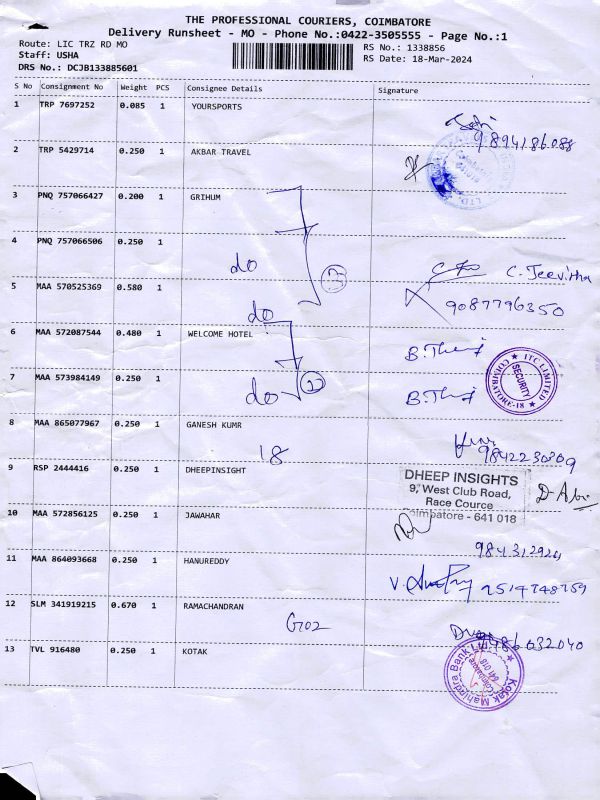 THE PROFESSIONAL COURIERS, COIMBATORE
Delivery Runsheet - MO - Phone No.:0422-3505555 - Page No.:1
Route: LIC TRZ RD MO
RS No.: 1338856
Staff: USHA
RS Date: 18-Mar-2024
DRS No.: DCJB133885601
S No Consignment No Weight PCS Consignee Details Signature
1 TRP 7697252 0.085 1 YOURSPORTS
9894186088
2 TRP 5429714 0.250 1 AKBAR TRAVEL
3 PNQ 757066427 0.200 1 GRIHUM
4 PNQ 757066506 0.250 1
do C. Jeevitha
5 MAA 570525369 0.580 1
do 9087796350
6 MAA 572087544 0.480 1 WELCOME HOTEL
ITC LIMITED SECURITY COIMBATORE-18
7 MAA 573984149 0.250 1
do
8 MAA 865077967 0.250 1 GANESH KUMR
18
9842230309
9 RSP 2444416 0.250 1 DHEEPINSIGHT
DHEEP INSIGHTS
9, West Club Road,
Race Cource
Coimbatore - 641 018
10 MAA 572856125 0.250 1 JAWAHAR
11 MAA 864093668 0.250 1 HANUREDDY
12 SLM 341919215 0.670 1 RAMACHANDRAN
13 TVL 916480 0.250 1 KOTAK
Kotak Mahindra Bank Ltd. Coimbatore 641 018